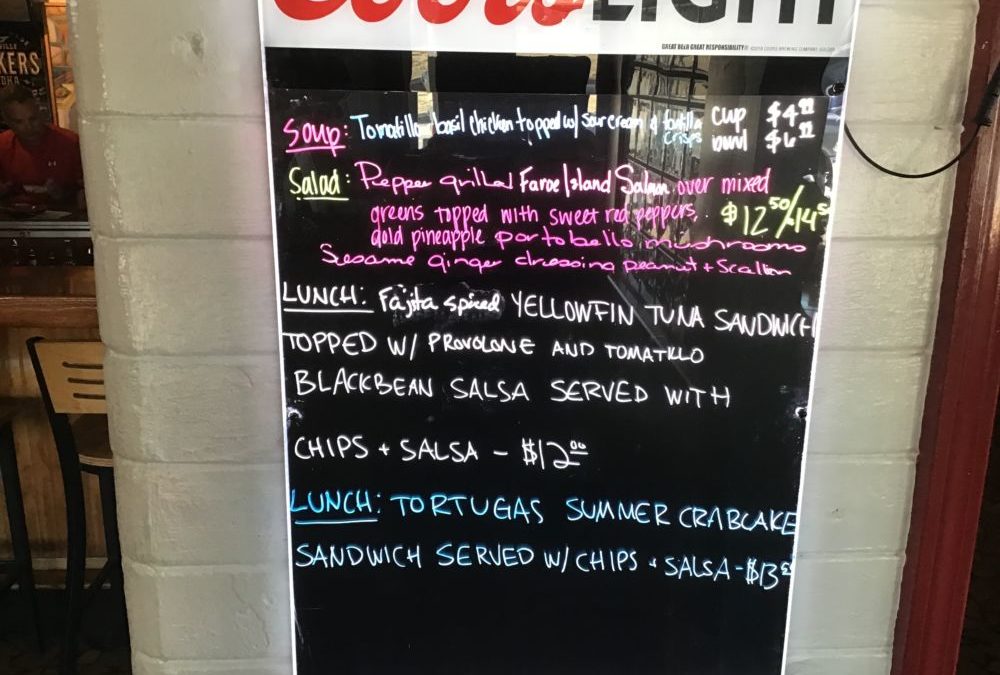 Coors LIGHT
GREAT BEER GREAT RESPONSIBILITY®
KERS
Soup: Tomatillo basil chicken topped w/ sour cream & tortilla crisps cup $4.99
bowl $6.99
Salad: Pepper grilled Faroe Island Salmon over mixed
greens topped with sweet red peppers, $12.50/14.5
gold pineapple portobello mushrooms
Sesame ginger dressing peanut + Scallion
LUNCH: Fajita spiced YELLOWFIN TUNA SANDWICH
TOPPED W/ PROVOLONE AND TOMATILLO
BLACKBEAN SALSA SERVED WITH
CHIPS + SALSA - $12.00
LUNCH: TORTUGAS SUMMER CRABCAKE
SANDWICH SERVED W/ CHIPS + SALSA - $13